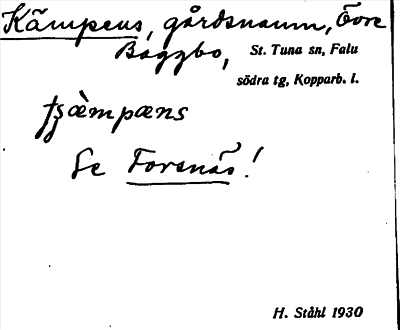 Kämpens, gårdsnamn, Övre
Baggbo, St. Tuna sn, Falu
södra tg, Kopparb. l.
tʒæ̀mpæns
Se Forsnäs!
H. Ståhl 1930